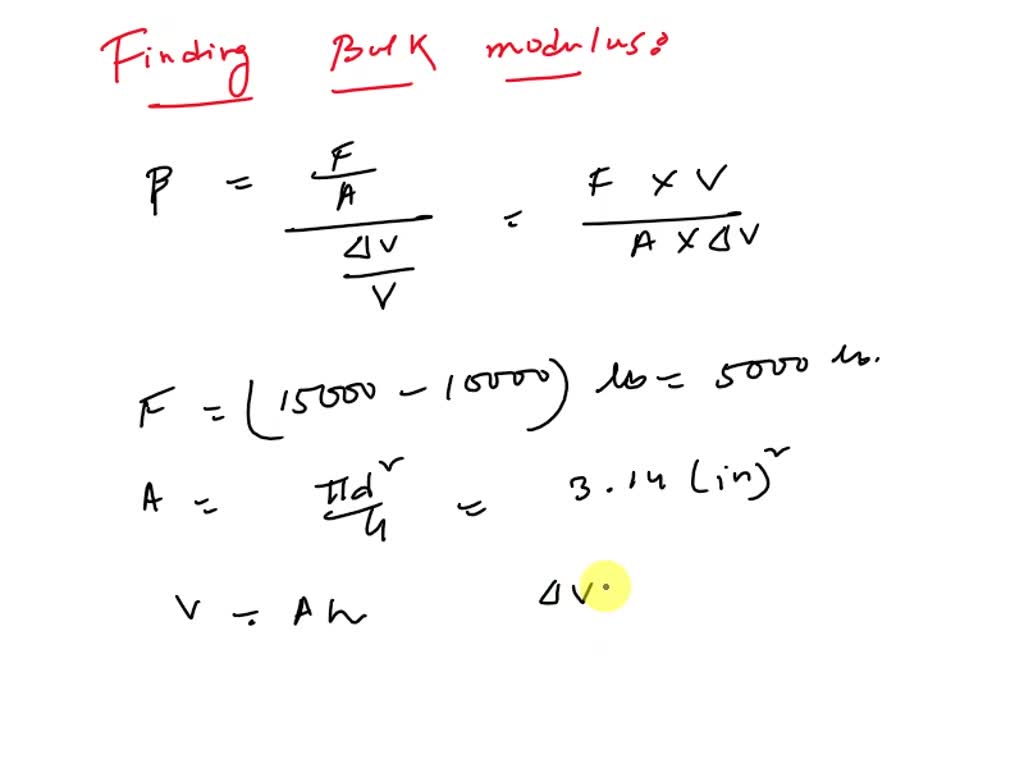 Finding Bulk modulus:
β = (F/A)/(ΔV/V) = (F × V)/(A × ΔV)
F = (15000 - 10000) lb = 5000 lb.
A = πd²/4 = 3.14 (in)²
V = Ah ΔV